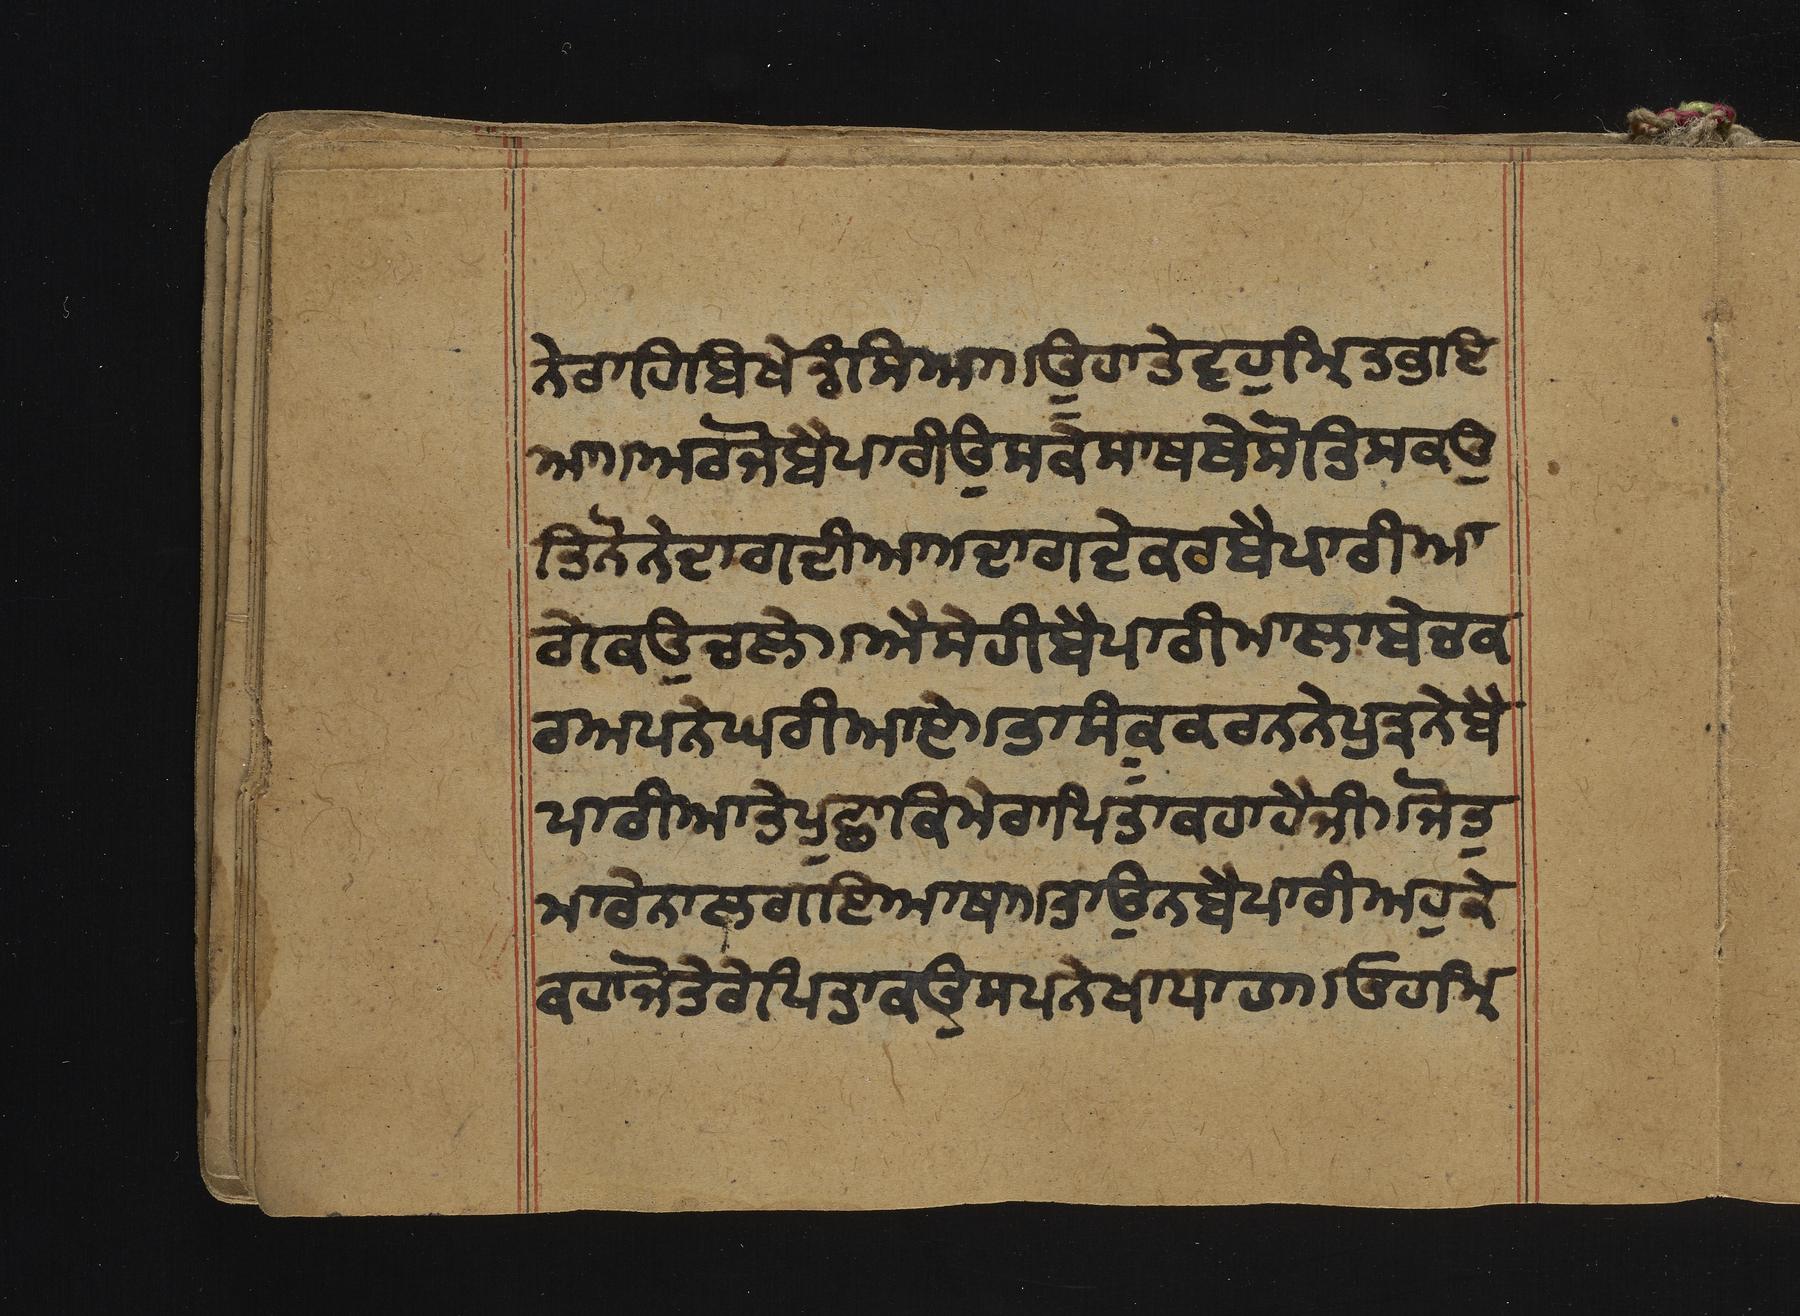 ਨੇਰਾਹਿਬਿਖੇਡੰਸਿਆ॥ਉਹਾਤੇਵੁਹੁਮ੍ਰਿਤਕੁਇ
ਆ॥ਅਰਜੋਬੈਪਾਰੀਉਸਕੇਸਾਥਥੇਸੋਤਿਸਕਉ
ਤਿਨੋਨੇਦਾਗਦੀਆ॥ਦਾਗਦੇਕਰਬੈਪਾਰੀਆ
ਗੇਕਉਚਲੇ॥ਐਸੇਹੀਬੈਪਾਰੀਮਾਲਾਬੇਚਕ
ਰਅਪਨੇਘਰੀਆਏ॥ਤਾਸੰਕੁਕਰਨਨੇਪੁਤ੍ਰਨੇਬੈ
ਪਾਰੀਆਤੇਪੁਛਾਕਿਮੇਰਾਪਿਤਾਕਹਾਹੈਜੀ॥ਜੋਤੁ
ਮਾਰੇਨਾਲਗਇਆਥਾ॥ਤਾਉਨਬੈਪਾਰੀਅਹੁਕੇ
ਕਹਾਜੋਤੇਰੇਪਿਤਾਕਉਸਪਨੇਖਾਪਾਹਾ॥ਓਹਮ੍ਰਿ